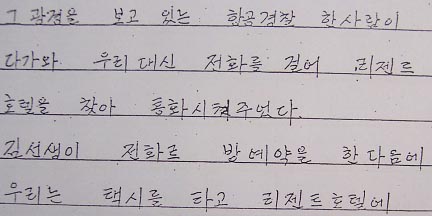 그 광경을 보고 있는 항공경찰 한사람이
다가와 우리 대신 전화를 걸어 리젠트
호텔을 찾아 통화시켜주었다.
김선생이 전화로 방예약을 한다음에
우리는 택시를 타고 리젠트호텔에